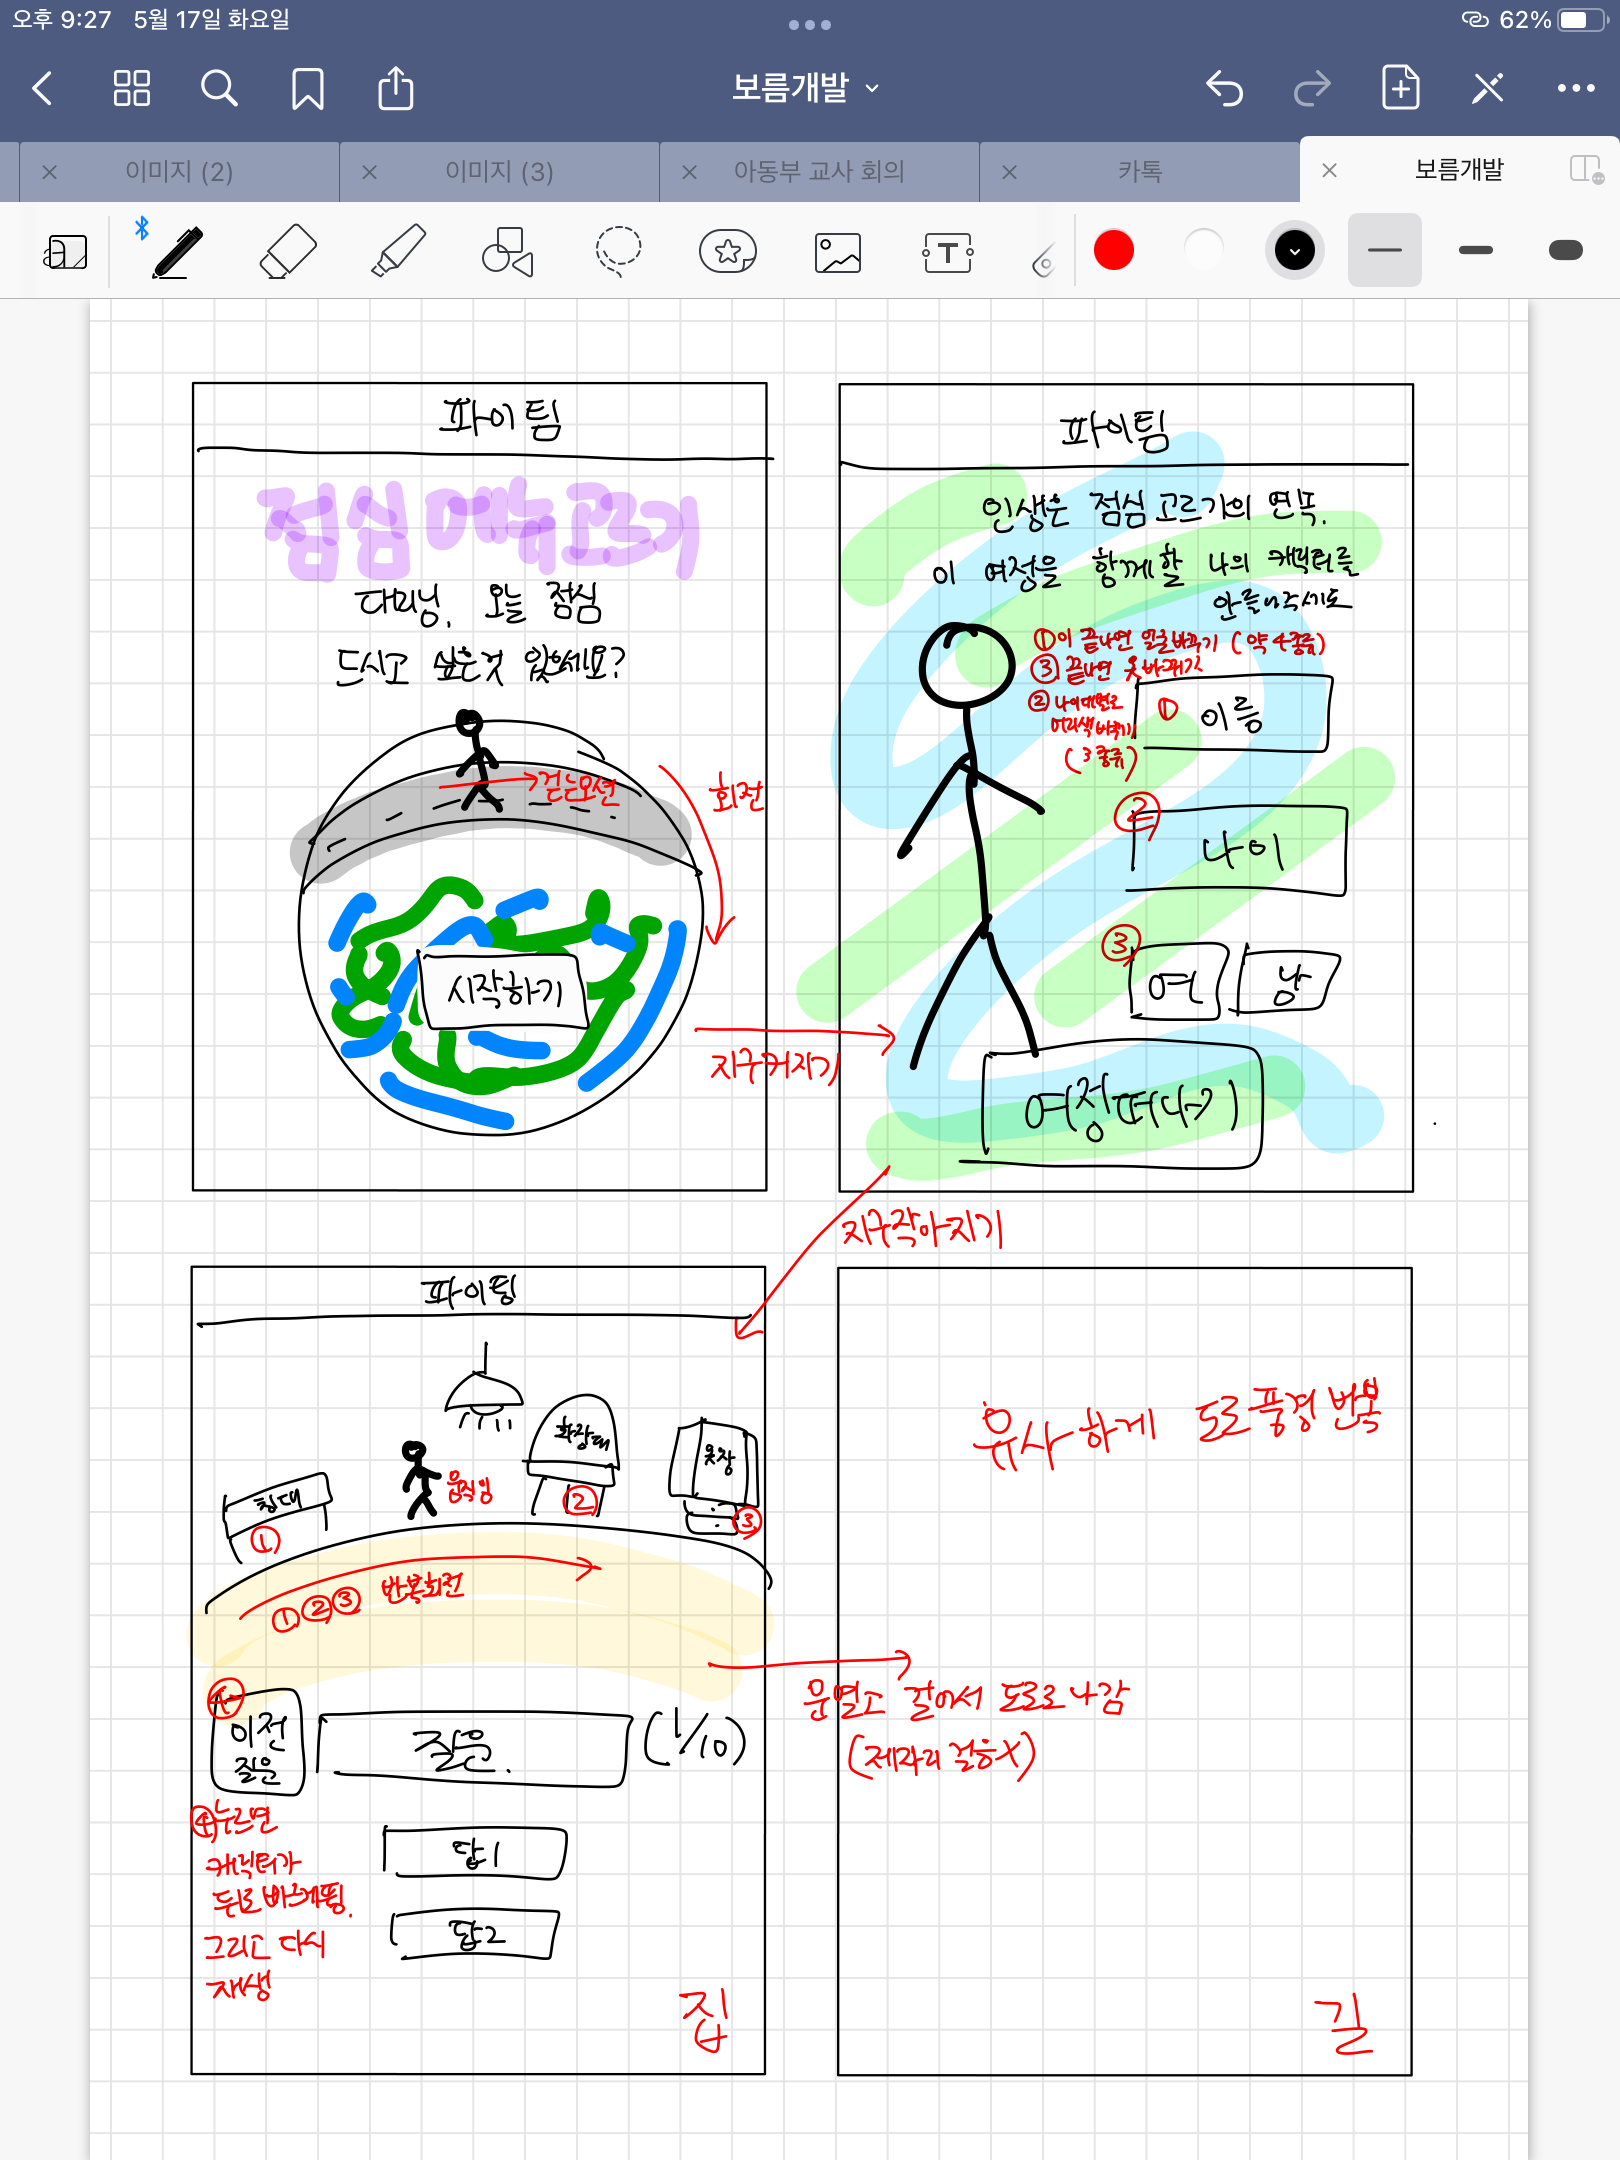 오후 9:27 5월 17일 화요일
62%
보름개발
이미지 (2)
이미지 (3)
아동부 교사 회의
카톡
보름개발
파이팀
점심메뉴고르기
대리님, 오늘 점심
드시고 싶은것 있으세요?
걷는모션
회전
시작하기
지구커지기
파이팀
인생은 점심 고르기의 연속.
이 여정을 함께할 나의 캐릭터를
만들어주세요
①이 끝나면 얼굴바꾸기 (약 4종류)
③ 끝나면 옷바꾸기
② 나이대별로
머리색 바꾸기
(3종류)
① 이름
②
나이
③
여
남
여정떠나기
지구작아지기
파이팀
침대
①
움직임
화장대
②
옷장
③
①②③ 반복회전
이전
질문
질문.
(1/10)
④누르면
캐릭터가
뒤로 빠르게됨.
그리고 다시
재생
답1
답2
집
문열고 걸어서 도로로 나감
(제자리 걸음X)
유사하게 도로풍경 반복
길